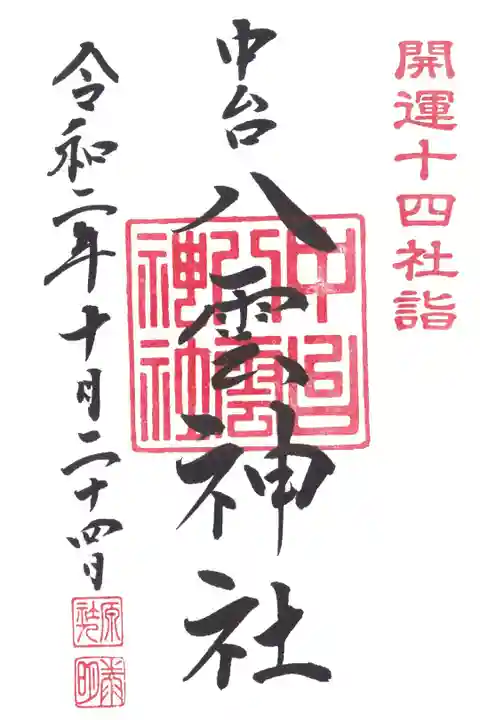 開運十四社詣
中台
八雲神社
中台八雲神社
令和二年十月二十四日